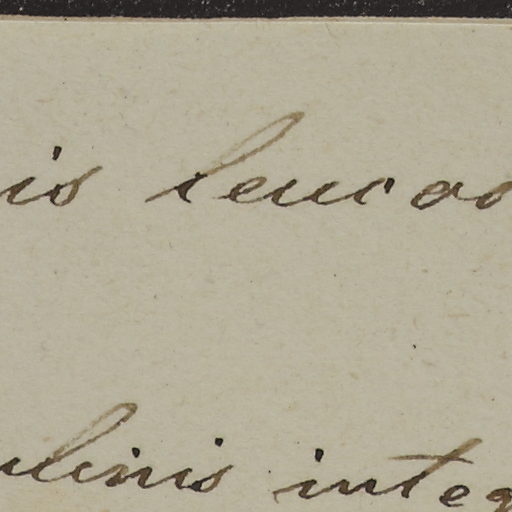 is leucoo
ulinis integ